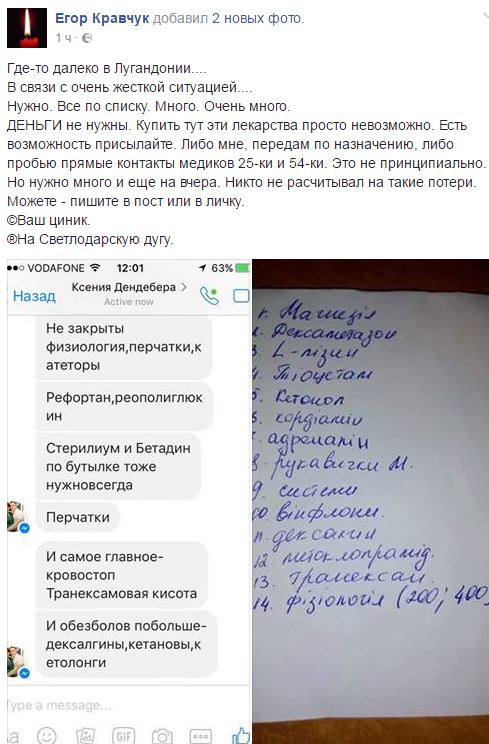 Егор Кравчук добавил 2 новых фото.
1 ч ·
Где-то далеко в Лугандонии....
В связи с очень жесткой ситуацией....
Нужно. Все по списку. Много. Очень много.
ДЕНЬГИ не нужны. Купить тут эти лекарства просто невозможно. Есть
возможность присылайте. Либо мне, передам по назначению, либо
пробью прямые контакты медиков 25-ки и 54-ки. Это не принципиально.
Но нужно много и еще на вчера. Никто не расчитывал на такие потери.
Можете - пишите в пост или в личку.
©Ваш циник.
®На Светлодарскую дугу.
VODAFONE 12:01 63%
Назад
Ксения Дендебера >
Active now
Не закрыты
физиология,перчатки,к
атеторы
Рефортан,реополиглюк
ин
Стерилиум и Бетадин
по бутылке тоже
нужновсегда
Перчатки
И самое главное-
кровостоп
Транексамовая кислота
И обезболов побольше-
дексалгины,кетановы,к
етолонги
Type a message...
Aa
GIF
1. Магнезія
2. Дексаметазон
3. L-лізин
4. Тіоцетам
5. Кетонол
6. кордіамін
7. адреналін
8. рукавички М.
9. системи
10. вінфлони.
11. дексалгін
12. метоклопрамід.
13. Транексам.
14. фізіологія (200; 400